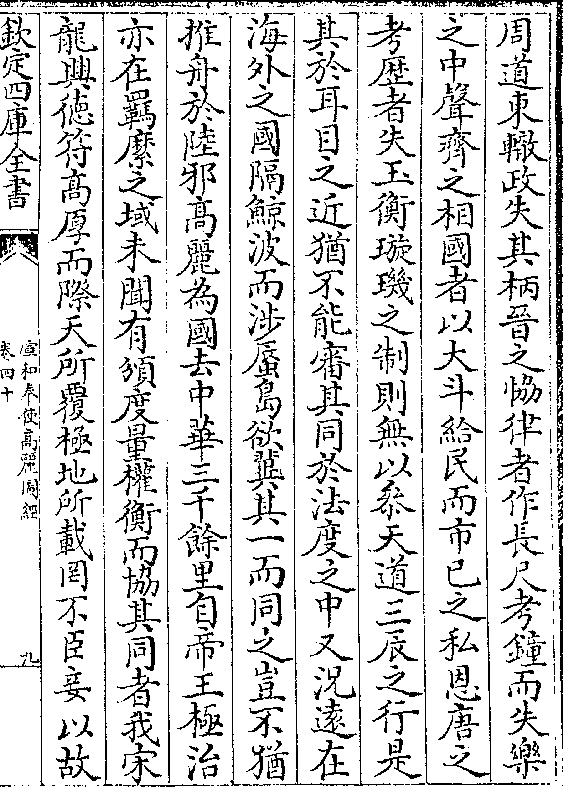 周道東轍政失其柄晉之恊律者作長尺考鐘而失樂
之中聲齊之相國者以大斗給民而市已之私恩唐之
考歴者失玉衡璇璣之制則無以叅天道三辰之行是
其於耳目之近猶不能審其同於法度之中又況遠在
海外之國隔鯨波而涉蜃島欲冀其一而同之豈不猶
推舟於陸邪髙麗為國去中華三千餘里自帝王極治
亦在羈縻之域未聞有頒度量權衡而協其同者我宋
龍興徳符髙厚而際天所覆極地所載罔不臣妾以故
欽定四庫全書
宣和奉使髙麗圖經
卷四十
九